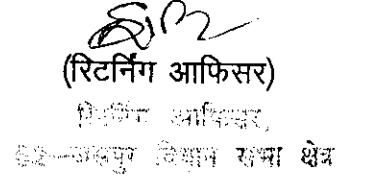 (रिटर्निंग आफिसर)
रिटर्निंग आफिसर,
विधान सभा क्षेत्र